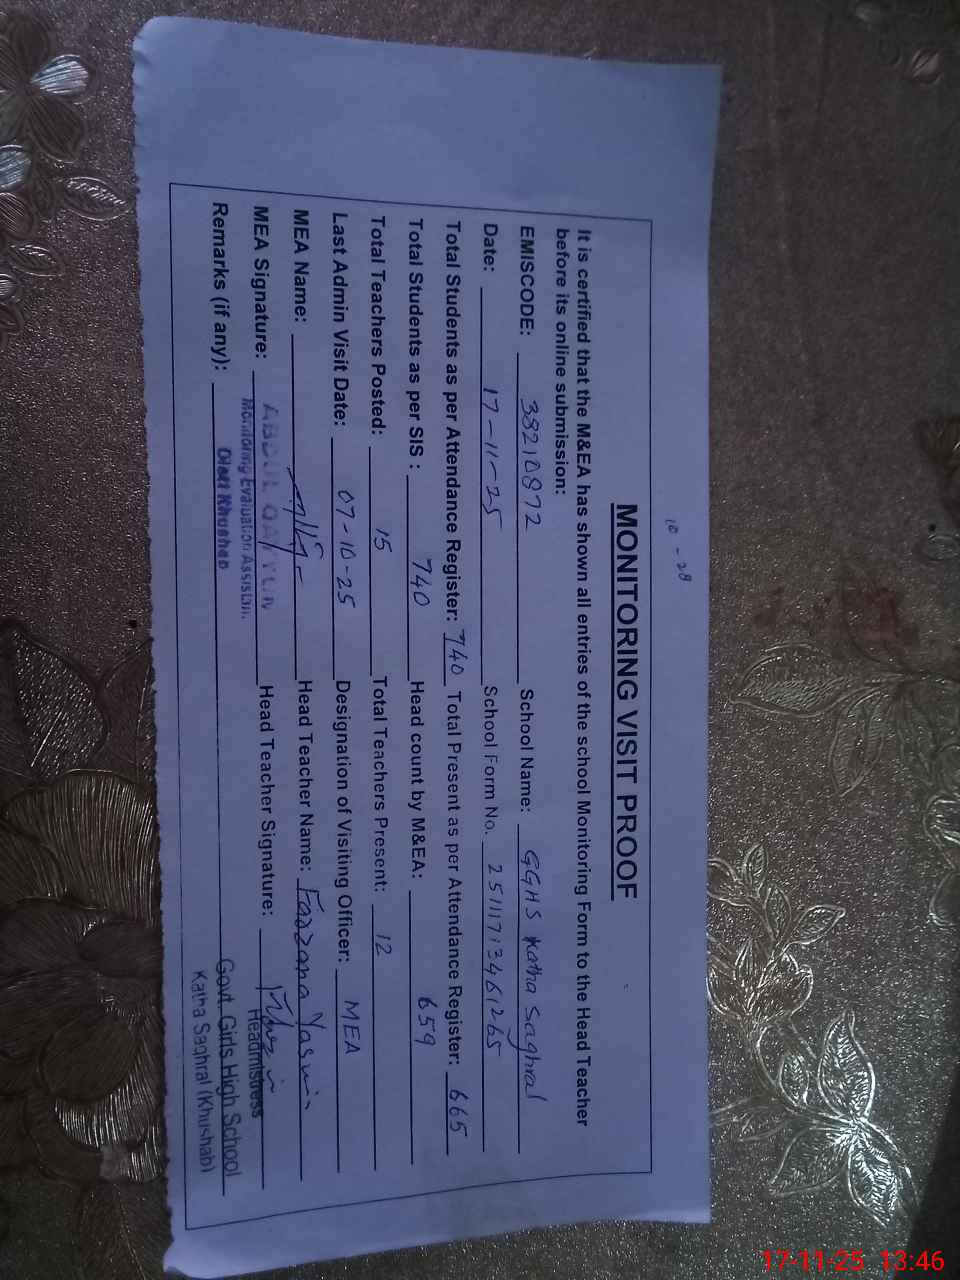 10 - 28
MONITORING VISIT PROOF
It is certified that the M&EA has shown all entries of the school Monitoring Form to the Head Teacher
before its online submission:
EMISCODE: 38210872 School Name: GGHS Katha Saghral
Date: 17-11-25 School Form No. 25111713461265
Total Students as per Attendance Register: 740 Total Present as per Attendance Register: 665
Total Students as per SIS : 740 Head count by M&EA: 659
Total Teachers Posted: 15 Total Teachers Present: 12
Last Admin Visit Date: 07-10-25 Designation of Visiting Officer: MEA
MEA Name: Head Teacher Name: Farzana Yasmin
MEA Signature: ABDUL QAYYUM Head Teacher Signature:
Monitoring Evaluation Assistant Headmistress
Remarks (if any): Distt Khushab Govt. Girls High School
Katha Saghral (Khushab)
17-11-25 13:46